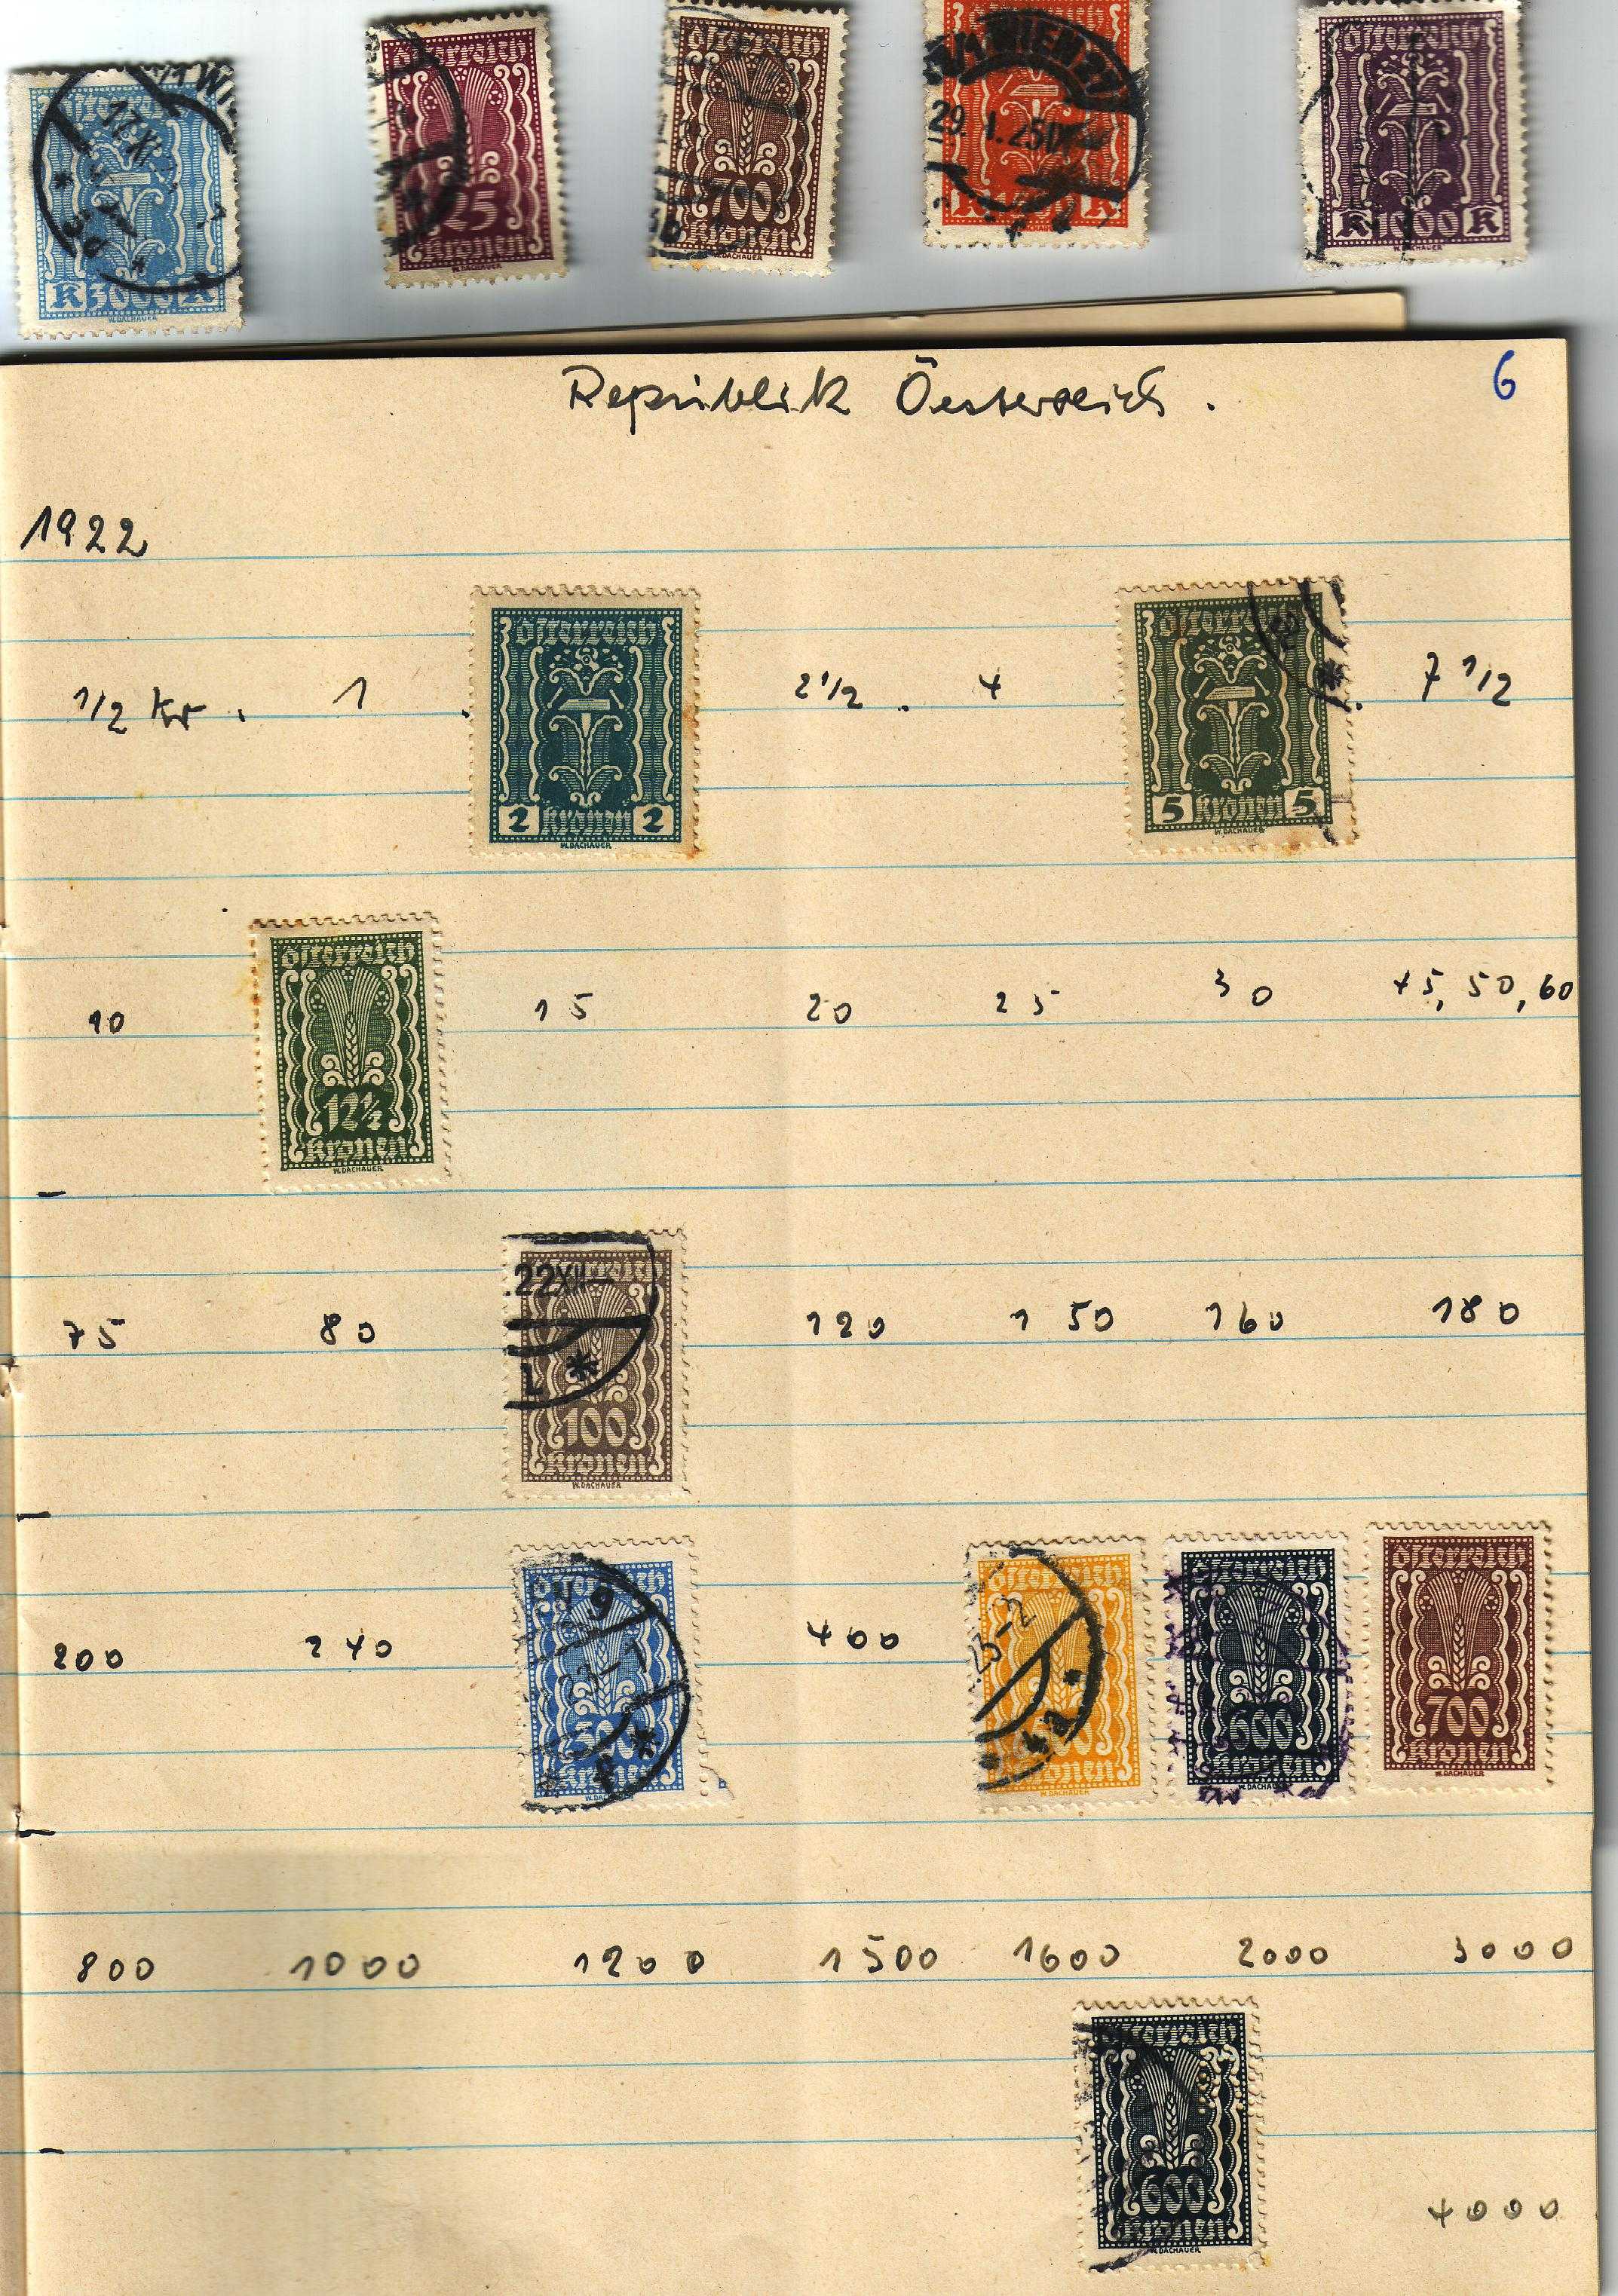 österreich
K 3000 K
W. DACHAUER
österreich
25
kronen
W. DACHAUER
österreich
700
kronen
W. DACHAUER
österreich
WIEN
29. I. 25 IX
K K
österreich
K 1000 K
W. DACHAUER
Republik Österreich. 6
1922
österreich
2 kronen 2
W. DACHAUER
österreich
5 kronen 5
W. DACHAUER
1/2 Kr. 1. 2 1/2. 4. 7 1/2
österreich
12½
kronen
W. DACHAUER
10 15 20 25 30 45, 50, 60
22 XII
L *
100
kronen
W. DACHAUER
75 80 120 150 160 180
österreich
300
kronen
österreich
23-2
kronen
W. DACHAUER
österreich
600
kronen
W. DACHAUER
österreich
700
kronen
W. DACHAUER
200 240 400
800 1000 1200 1500 1600 2000 3000
österreich
600
kronen
W. DACHAUER
4000